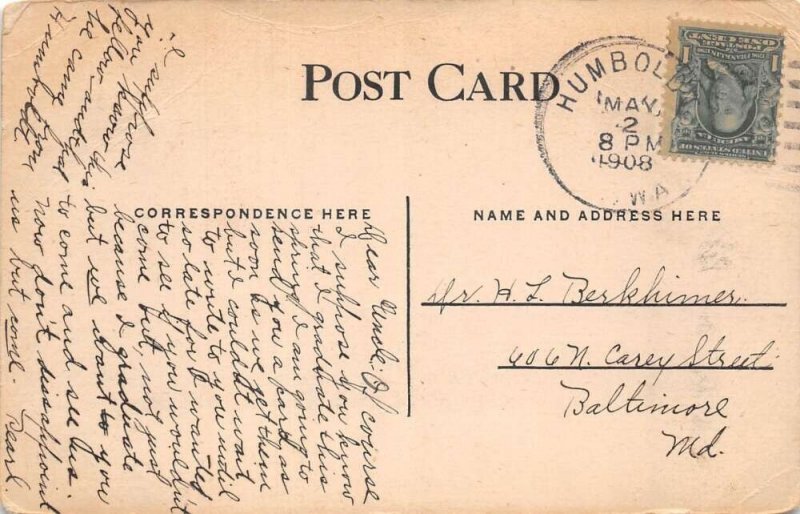 POST CARD
HUMBOL
MAY
2
8 PM
1908
WA
ONE CENT
1 1
CORRESPONDENCE HERE
NAME AND ADDRESS HERE
Dear Uncle: Of course
I suppose you know
that I graduate this
spring. I am going to
send you a card as
soon as we get them
but I couldn't wait
to write to you until
so late for I wanted
to see if you wouldn't
come but, not just
because I graduate
but we want to you
to come and see us.
Now don't disappoint
us but come. Pearl.
I suppose
you know this
fellow surely
he came that
from you
Dr. H. L. Berkhimer
606 N. Carey Street
Baltimore
Md.